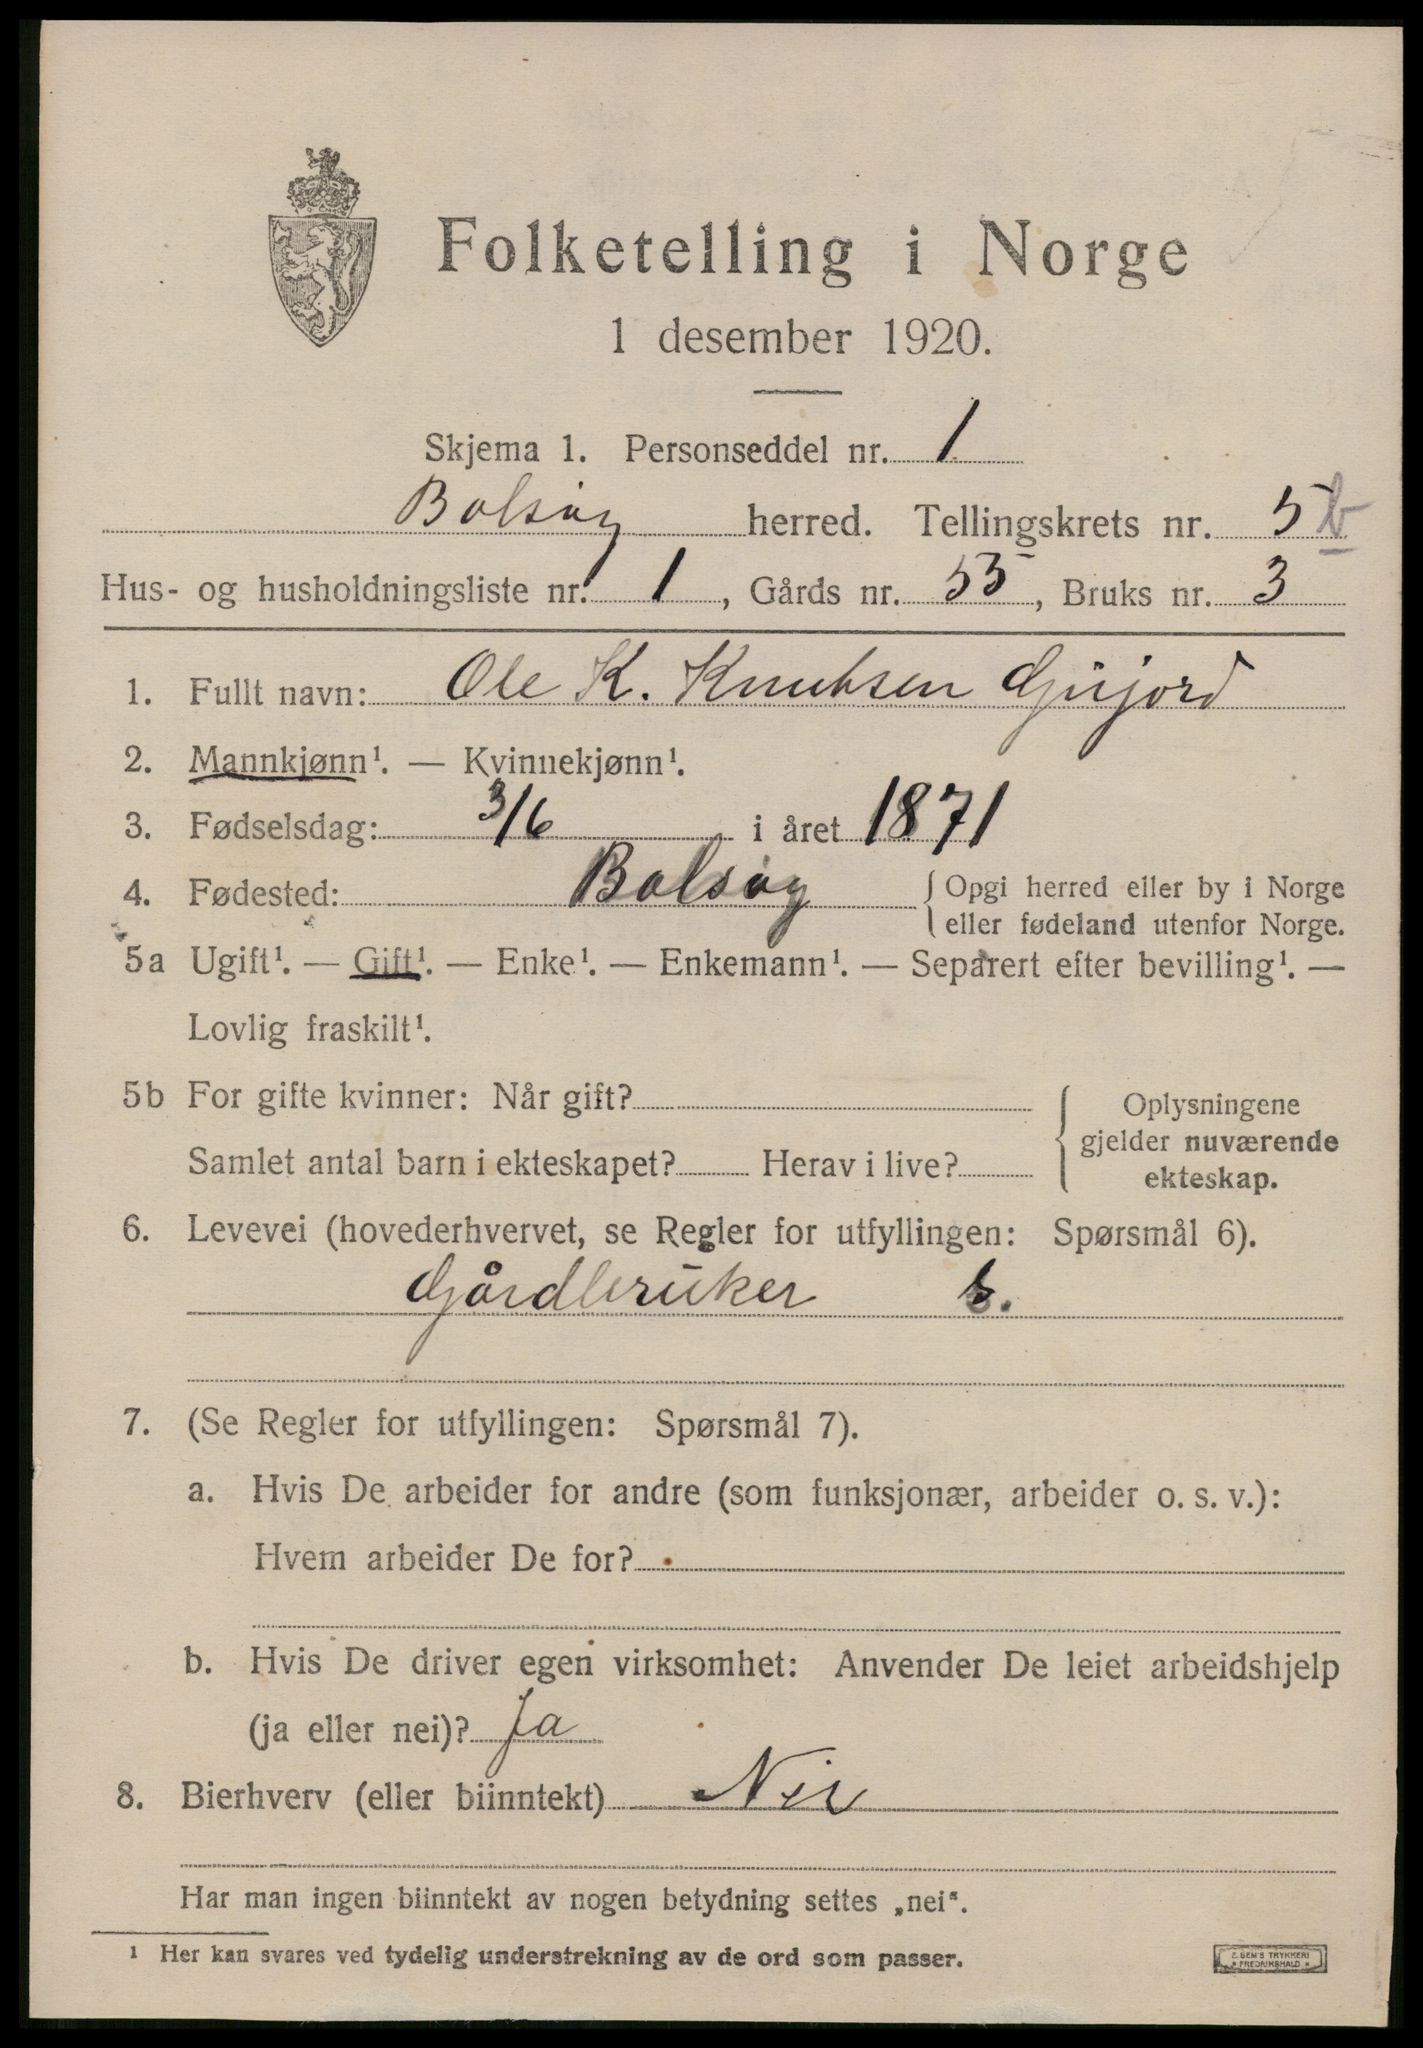 Folketelling i Norge
1 desember 1920.
Skjema 1. Personseddel nr. 1
Bolsøy herred. Tellingskrets nr. 5 b
Hus- og husholdningsliste nr. 1, Gårds nr. 55, Bruks nr. 3
1. Fullt navn: Ole K. Knutsen Gujord
2. Mannkjønn¹. — Kvinnekjønn¹.
3. Fødselsdag: 3/6 i året 1871
4. Fødested: Bolsøy { Opgi herred eller by i Norge
eller fødeland utenfor Norge.
5a Ugift¹. — Gift¹. — Enke¹. — Enkemann¹. — Separert efter bevilling¹. —
Lovlig fraskilt¹.
5b For gifte kvinner: Når gift?
Samlet antal barn i ekteskapet? Herav i live?
{ Oplysningene
gjelder nuværende
ekteskap.
6. Levevei (hovederhvervet, se Regler for utfyllingen: Spørsmål 6).
Gårdbruker s.
7. (Se Regler for utfyllingen: Spørsmål 7).
a. Hvis De arbeider for andre (som funksjonær, arbeider o. s. v.):
Hvem arbeider De for?
b. Hvis De driver egen virksomhet: Anvender De leiet arbeidshjelp
(ja eller nei)? Ja
8. Bierhverv (eller biinntekt) Nei
Har man ingen biinntekt av nogen betydning settes „nei“.
¹ Her kan svares ved tydelig understrekning av de ord som passer.
E. SEM'S TRYKKERI
FREDRIKSHALD